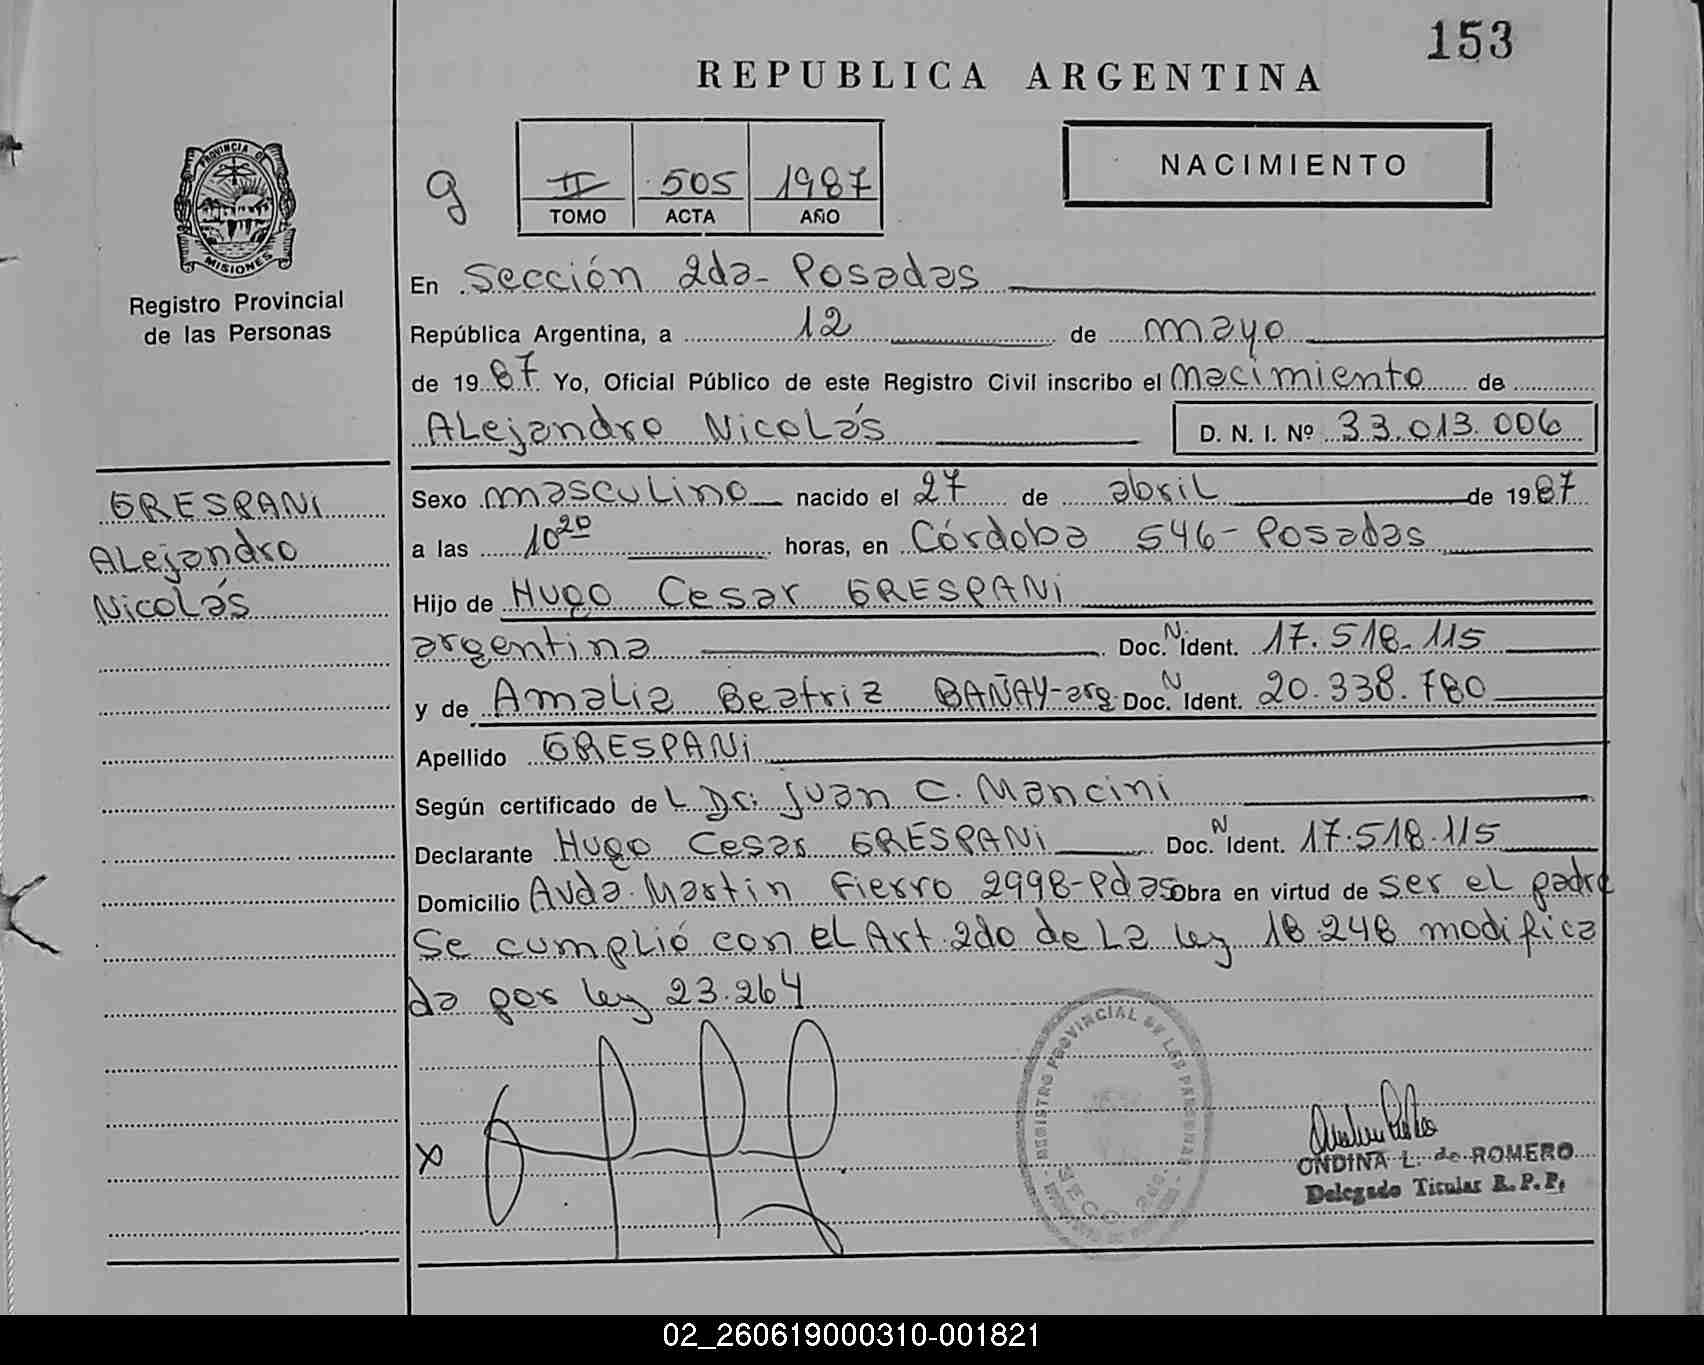 153
REPUBLICA ARGENTINA
PROVINCIA DE
MISIONES
Registro Provincial
de las Personas
g
II 505 1987
TOMO ACTA AÑO
NACIMIENTO
En Sección 2da- Posadas
República Argentina, a 12 de mayo
de 1987 Yo, Oficial Público de este Registro Civil inscribo el Nacimiento de
Alejandro Nicolás D. N. I. Nº 33.013.006
GRESPANI
Alejandro
Nicolás
Sexo masculino nacido el 27 de abril de 1987
a las 10 20 horas, en Córdoba 546- Posadas
Hijo de Hugo Cesar GRESPANI
argentina Doc. N Ident. 17.518.115
y de Amalia Beatriz BAÑAY-arg. Doc. N Ident. 20.338.780
Apellido GRESPANI
Según certificado de L Dr. Juan C. Mancini
Declarante Hugo Cesar GRESPANI Doc. N Ident. 17.518.115
Domicilio Avda. Martin Fierro 2998-Pdas Obra en virtud de ser el padre
Se cumplió con el Art. 2do de La ley 18.248 modifica
da por ley 23.264
REGISTRO PROVINCIAL DE LAS PERSONAS
SECC. 2da.
x
ONDINA L. de ROMERO
Delegado Titular R. P. P.
02_260619000310-001821